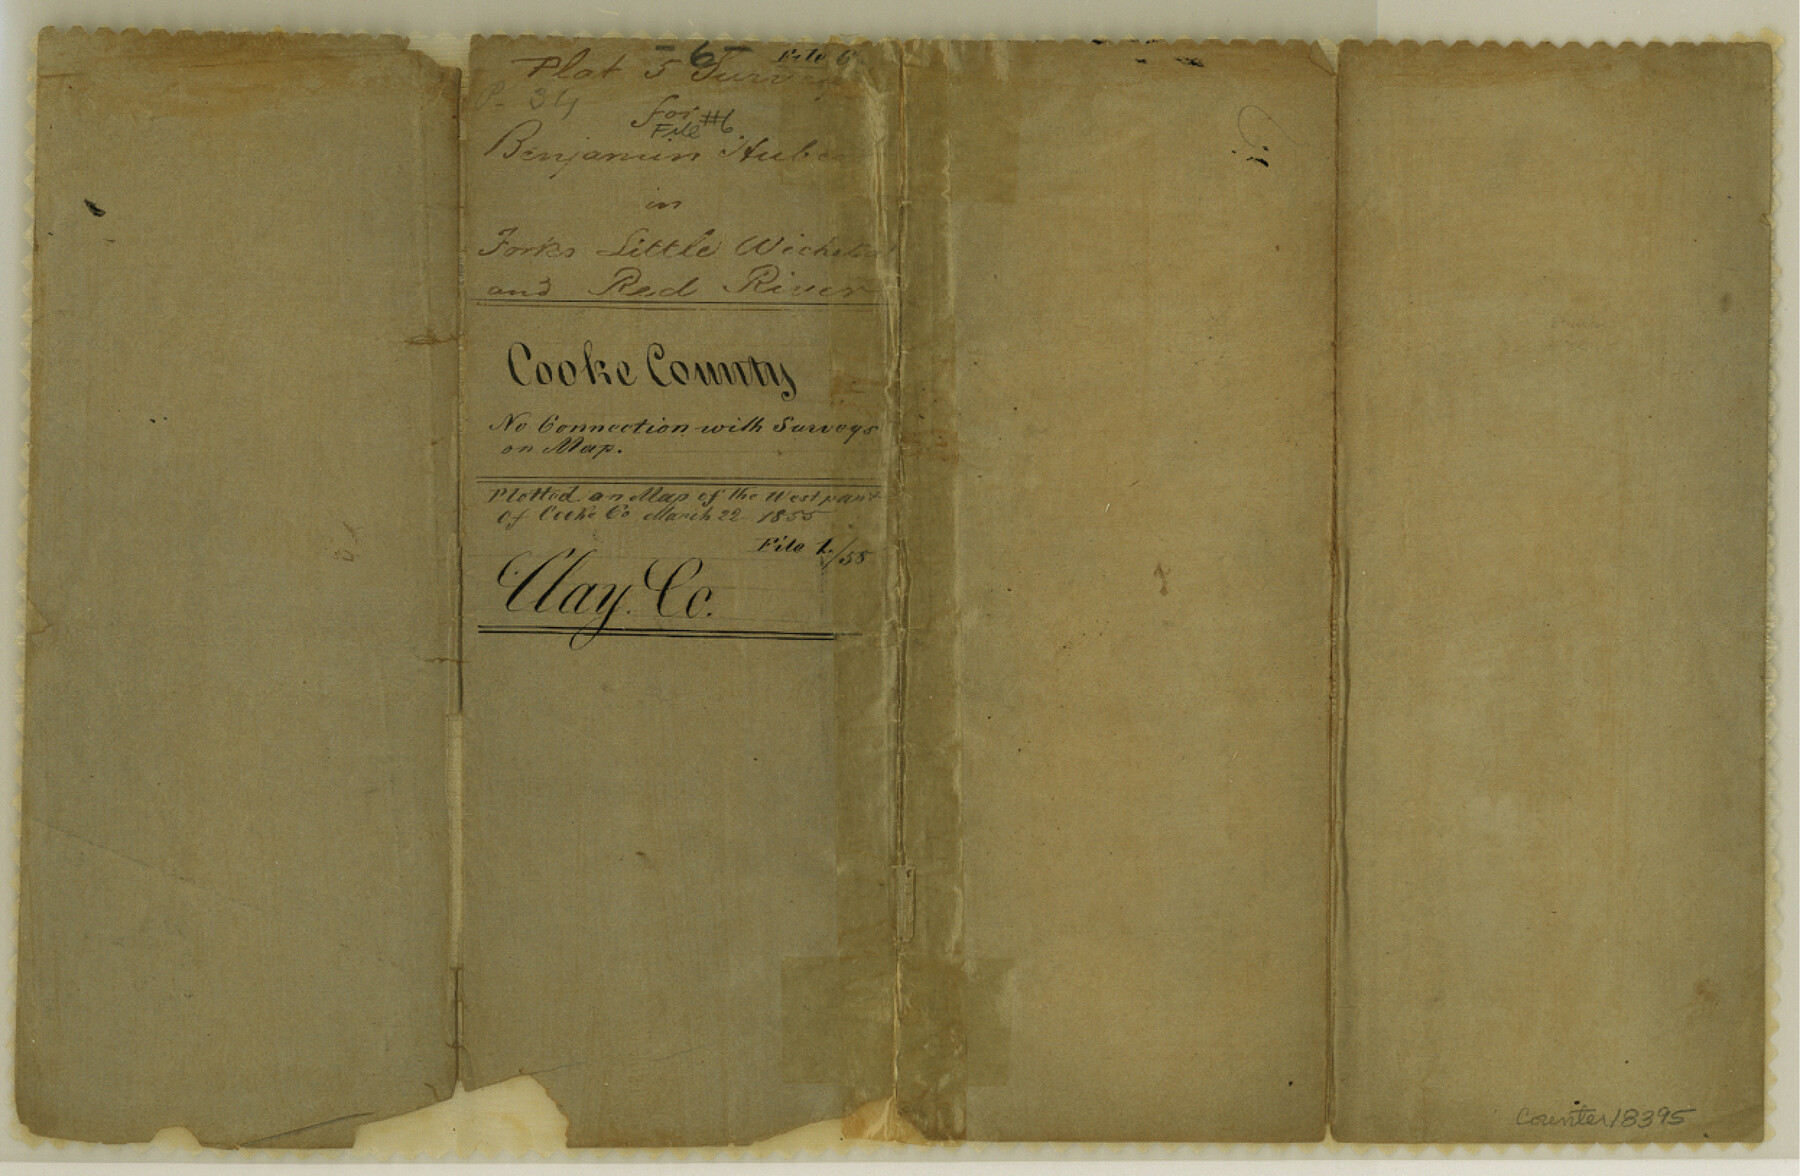 - 6 -
File 6
Plat 5 Surveys
P- 34
for
File #6
Benjamin
in
Forks Little Wichita
and Red River
Cooke County
No Connection with Surveys
on Map.
Plotted on Map of the West part
of Cooke Co March 22 1855
File 1/55
Clay Co.
Counter 18395